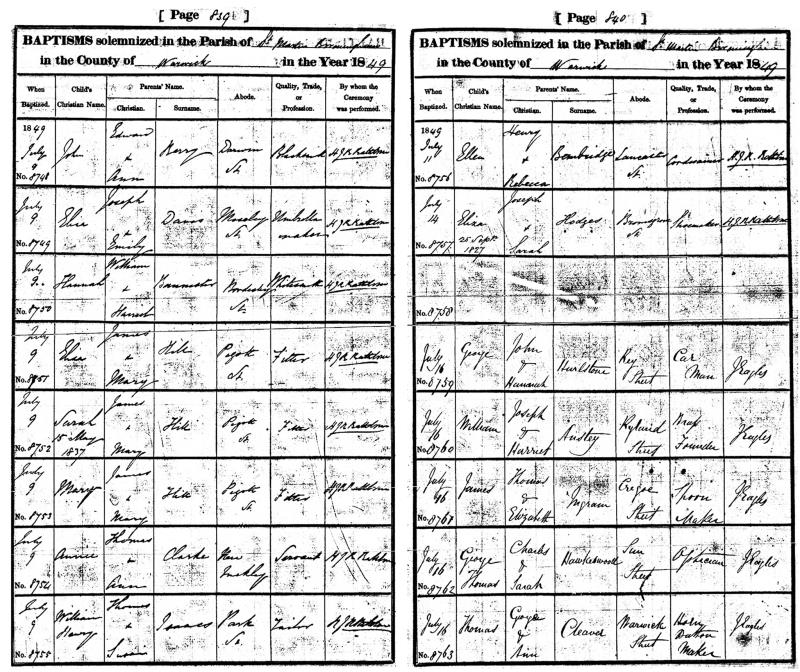 [ Page 839 ]
BAPTISMS solemnized in the Parish of St. Martin Birmingham
in the County of Warwick in the Year 1849
When Baptized. Child's Christian Name. Parents' Name. Christian. Surname. Abode. Quality, Trade, or Profession. By whom the Ceremony was performed.
1849 July 9 No. 8748 John Edward & Ann Berry Street
July 9 No. 8749 Joseph & Emily Davis Moseley St. Umbrella maker
July 9 No. 8750 Hannah William & Harriet Bannister Bordesley St. Whitesmith
July 9 No. 8751 James & Mary Hill Pigott St. Fitter
July 9 No. 8752 Sarah 15 May 1837 James & Mary Hill Pigott St. Fitter
July 9 No. 8753 Mary James & Mary Hill Pigott St. Fitter
July 9 No. 8754 Annie Thomas & Ann Clarke New Inckley Servant
July 9 No. 8755 William Henry Thomas & Susan Isaacs Park St. Tailor
[ Page 840 ]
BAPTISMS solemnized in the Parish of St. Martin Birmingham
in the County of Warwick in the Year 1849
When Baptized. Child's Christian Name. Parents' Name. Christian. Surname. Abode. Quality, Trade, or Profession. By whom the Ceremony was performed.
1849 July 11 No. 8756 Ellen Henry & Rebecca Lancaster St. Cordwainer
July 14 No. 8757 Eliza 25 Sept. 1827 Joseph & Sarah Hodges Bromsgrove St. Shoemaker
No. 8758
July 16 No. 8759 George John & Hannah Hurlstone Key Street Car Man J Eagles
July 16 No. 8760 William Joseph & Harriet Austey Ryland Street Brass Founder J Eagles
July 16 No. 8761 James Thomas & Elizabeth Ingram Cregoe Street Spoon Maker J Eagles
July 16 No. 8762 George Thomas Charles & Sarah Hawkeswood Sun Street Optician J Eagles
July 16 No. 8763 Thomas George & Ann Cleaver Warwick Street Horn Button Maker J Eagles